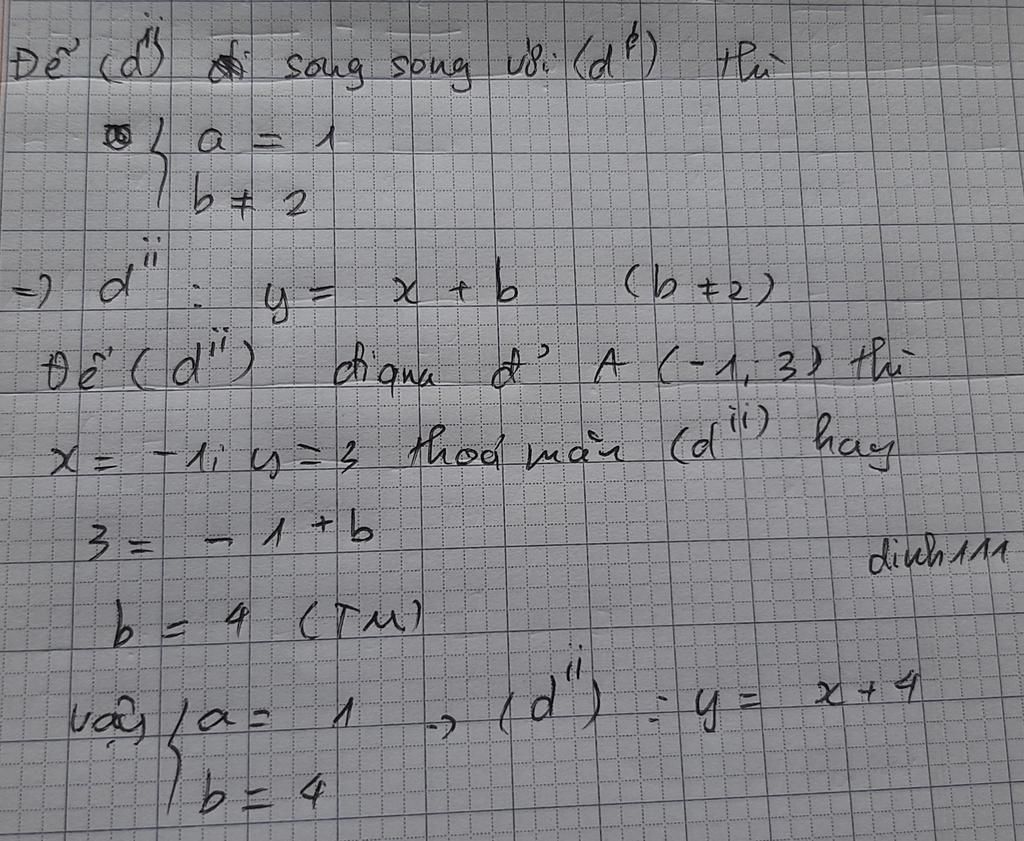 Để (d'') song song với (d') thì
{ a = 1
b ≠ 2
=> d'' : y = x + b (b ≠ 2)
Để (d'') đi qua đ' A (-1; 3) thì
x = -1; y = 3 thoả mãn (d'') hay
3 = - 1 + b
dinh111
b = 4 (TM)
Vậy { a = 1 => (d'') : y = x + 4
b = 4